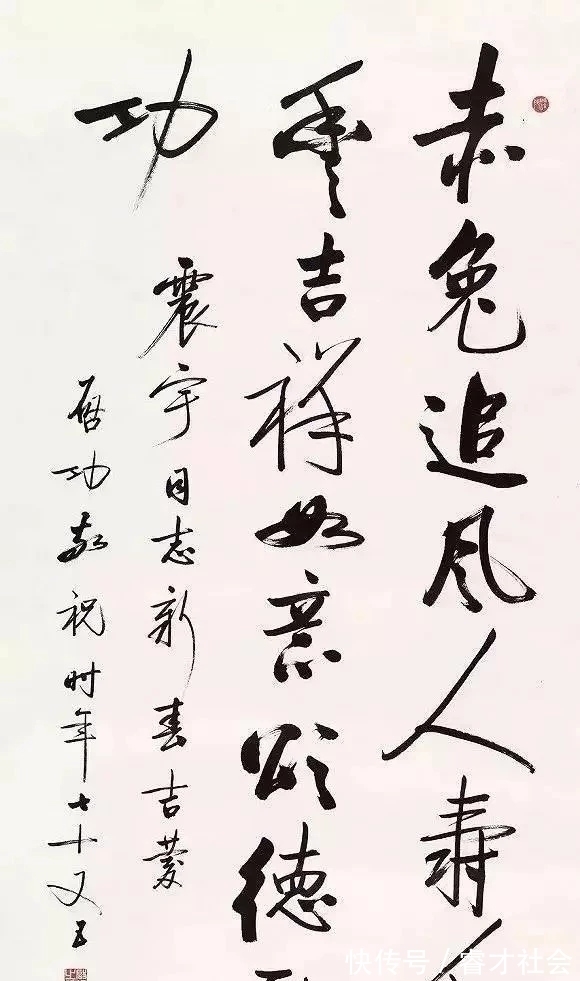 赤兔追风人寿
吉祥如意颂德
功
震宇同志新春吉慶
启功敬祝时年七十又五
快传号/睿才社会